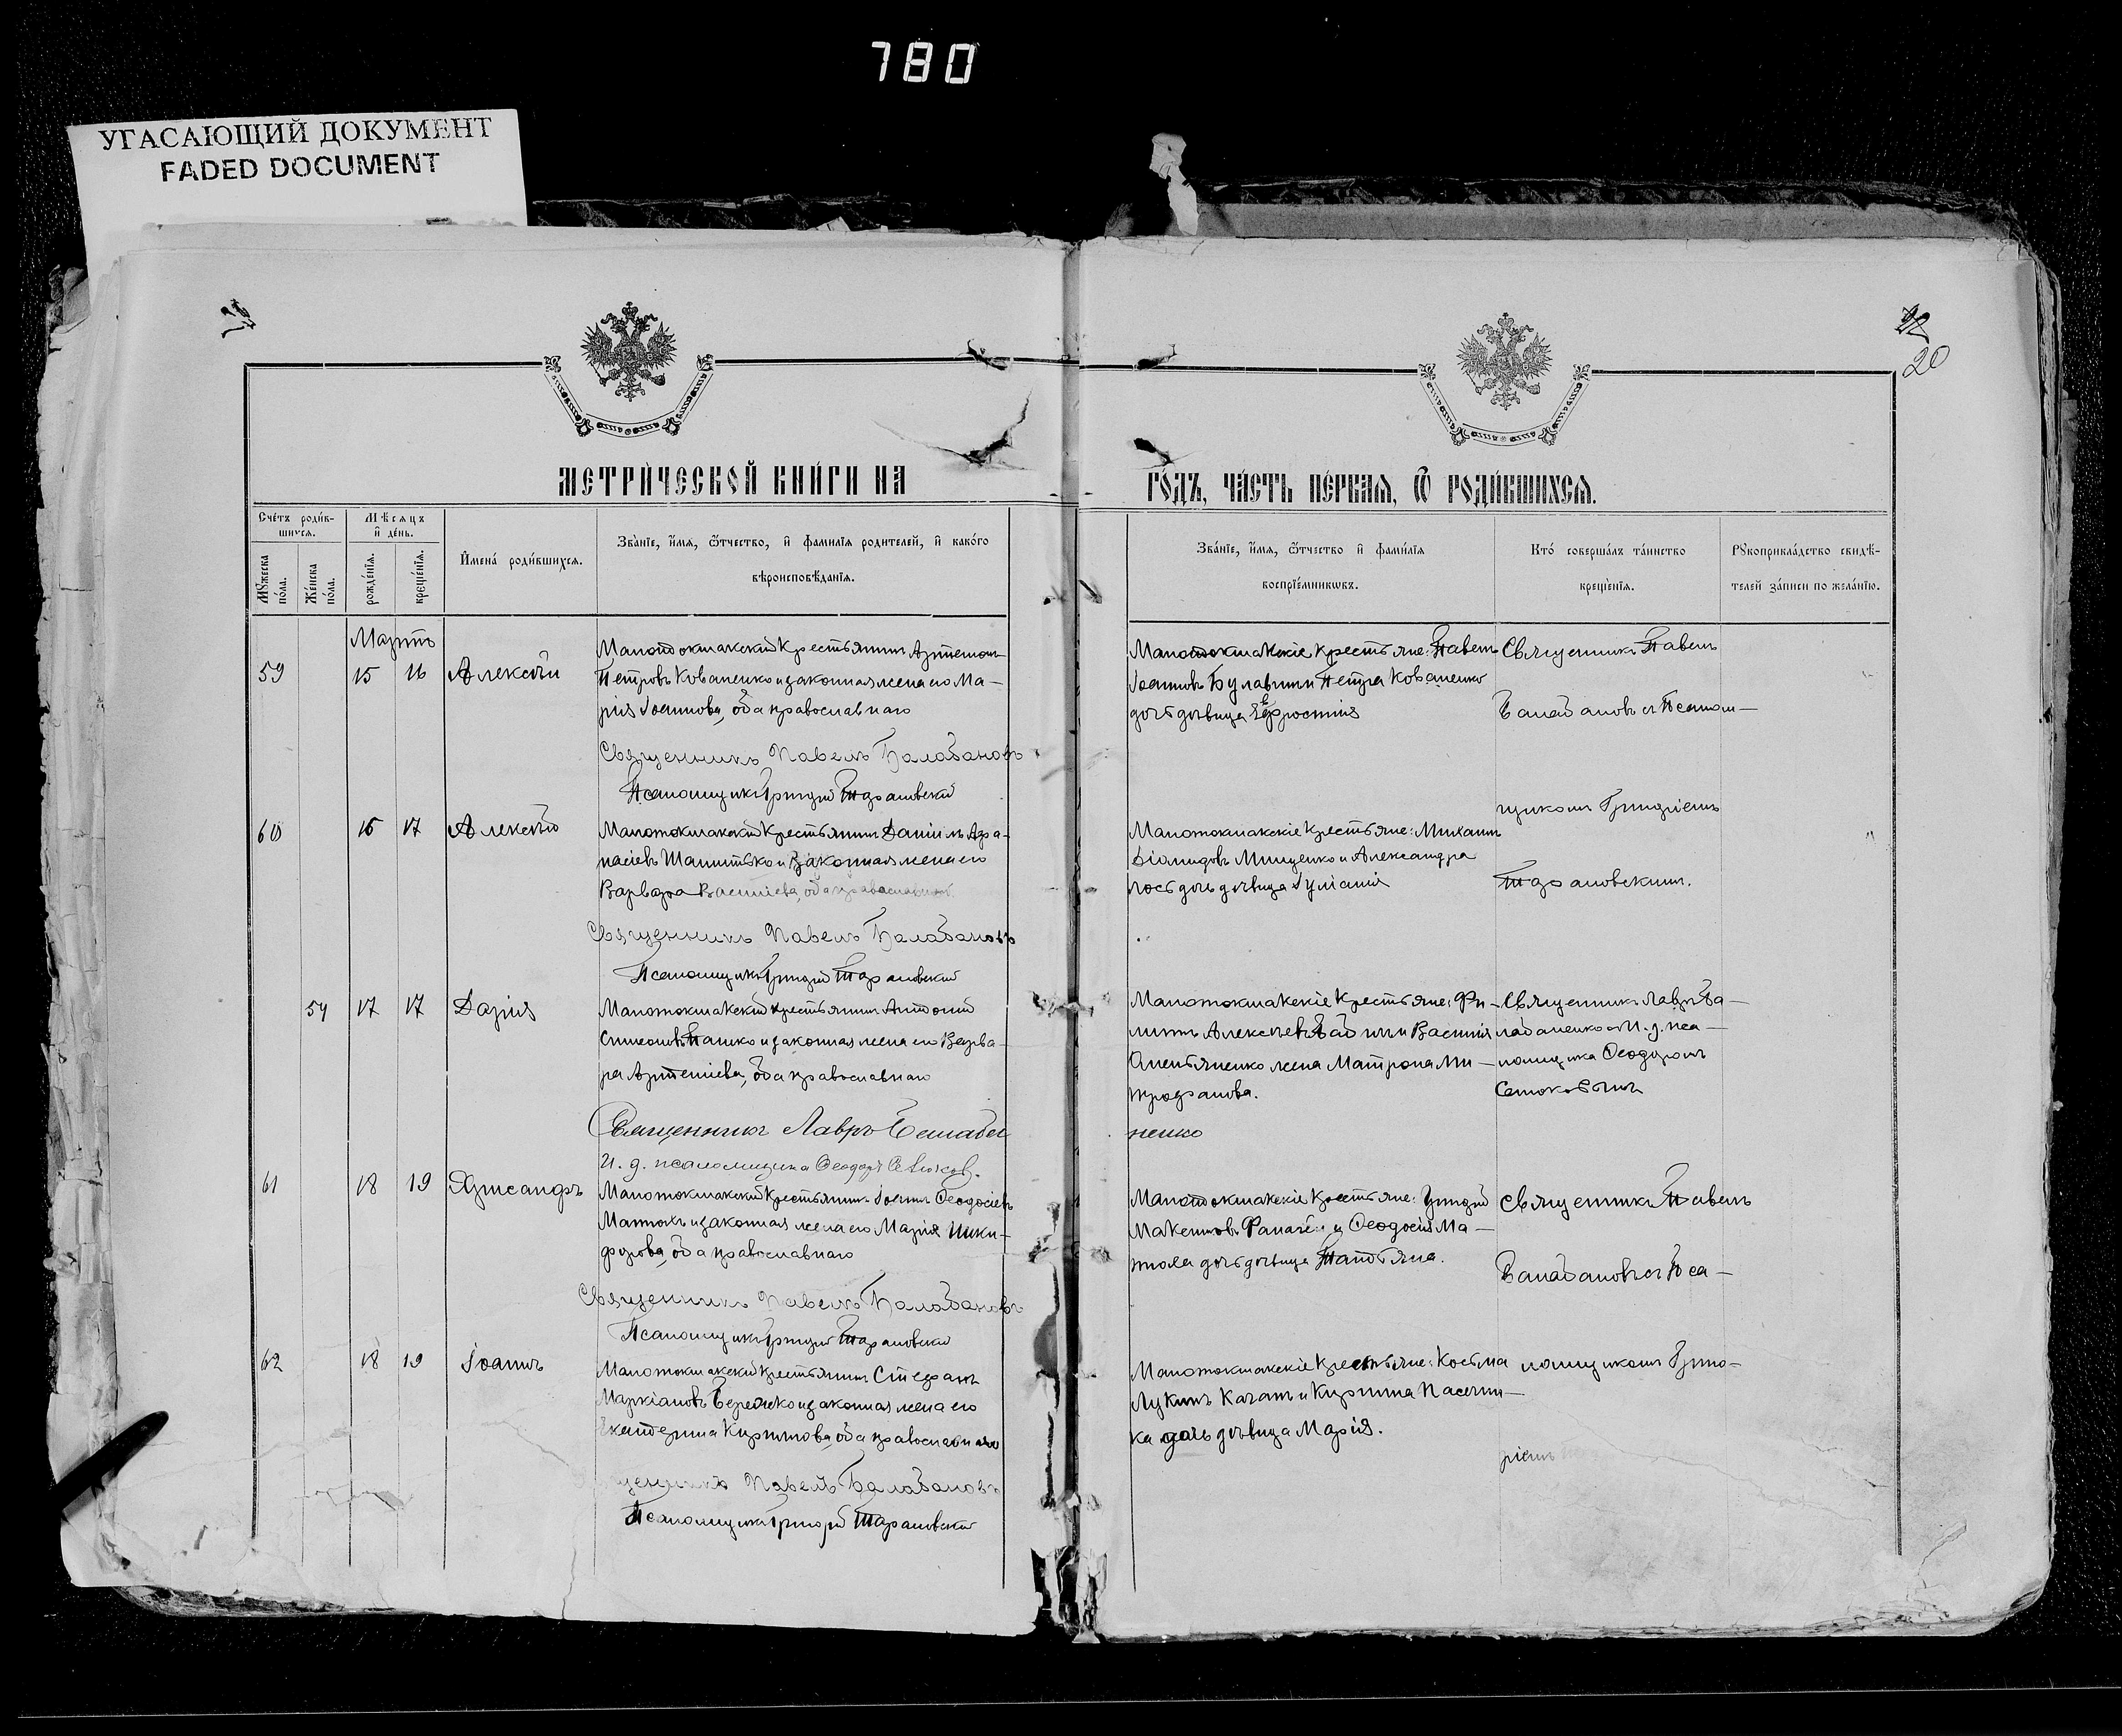 780
УГАСАЮЩИЙ ДОКУМЕНТ
FADED DOCUMENT
20
МЕТРИ́ЧЕСКОЙ КНИ́ГИ НА
ГО́ДЪ, ЧА́СТЬ ПЕ́РВАѦ, Ѿ РОДИ́ВШИХСѦ.
Сче́тъ роди́в-
шихся.
Мѣсяцъ
и҆ де́нь.
Мꙋжеска по́ла.
Же́нска по́ла.
рожде́нїѧ.
креще́нїѧ.
И҆мена́ роди́вшихся.
Зва́нїе, и҆́мѧ, ѻ҆́тчество, и҆ фами́лїѧ роди́телей, и҆ како́го
вѣроисповѣ́данїѧ.
Зва́нїе, и҆́мѧ, ѻ҆́тчество и҆ фами́лїѧ
воспрїе́мникѡвъ.
Кто̀ соверша́лъ та́инство
креще́нїѧ.
Рꙋкоприкла́дство свидѣ́-
телей за́писи по жела́нїю.
Мартъ
59 15 16 Алексѣй
Малотокмакскій крестьянинъ Артемонъ
Петровъ Коваленко и законная жена его Ма-
рія Іоаннова, оба православнаго
Священникъ Павелъ Балабановъ
Псаломщикъ Григорій Тарановскій
Малотокмакскіе крестьяне: Павелъ
Іоанновъ Булавин и Петра Коваленко
дочь дѣвица Евфросинія
Священникъ Павелъ
Балабановъ съ Псалом-
щикомъ Григоріемъ
Тарановскимъ.
60 16 17 Алексѣй
Малотокмакскій крестьянинъ Даніилъ Афа-
насіевъ и законная жена его
Варвара Василіева, оба православнаго
Священникъ Павелъ Балабановъ
Псаломщикъ Григорій Тарановскій
Малотокмакскіе крестьяне: Михаилъ
Діомидовъ Мищенко и Александра
дочь дѣвица Іуліанія
54 17 17 Дарія
Малотокмакскій крестьянинъ Антоній
Симеоновъ Пашко и законная жена его Варва-
ра Артеміева, оба православнаго
Священникъ Лавръ
ненко
И. д. псаломщика Ѳеодоръ
Малотокмакскіе крестьяне: Фи-
липпъ Алексѣевъ и Василія
жена Матрона Ми-
трофанова.
Священникъ Лавръ Ба-
лабаненко съ И. д. пса-
ломщика Ѳеодоромъ
61 18 19 Александръ
Малотокмакскій крестьянинъ Іоаннъ Ѳеодосіевъ
и законная жена его Марія Ники-
форова, оба православнаго
Священникъ Павелъ Балабановъ
Псаломщикъ Григорій Тарановскій
Малотокмакскіе крестьяне: Григорій
и Ѳеодосія Ма-
дочь дѣвица Татьяна.
Священникъ Павелъ
Балабановъ съ Пса-
ломщикомъ Григо-
ріемъ
62 18 19 Іоаннъ
Малотокмакскій крестьянинъ Стефанъ
Маркіановъ и законная жена его
Екатерина Кириллова, оба православнаго
Священникъ Павелъ Балабановъ
Псаломщикъ Григорій Тарановскій
Малотокмакскіе крестьяне: Косьма
Лукинъ и Кирилла Пасечни-
ка дочь дѣвица Марія.